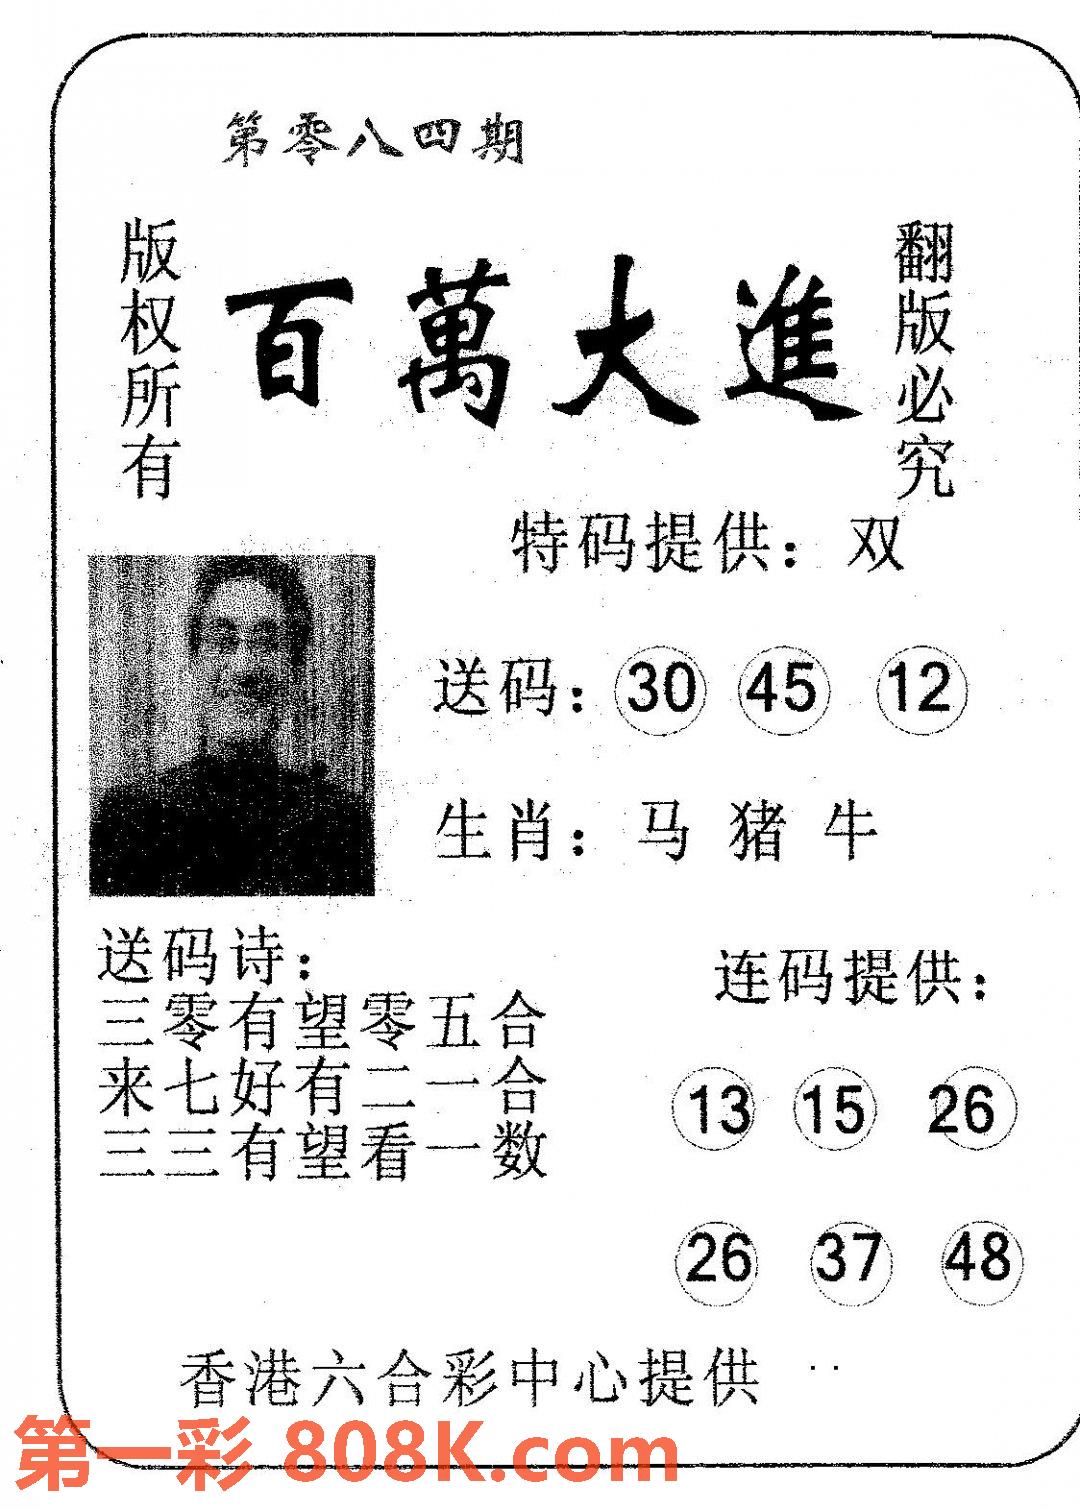 第零八四期
版权所有
百萬大進
翻版必究
特码提供：双
送码：30 45 12
生肖：马 猪 牛
送码诗：
三零有望零五合
来七好有二一合
三三有望看一数
连码提供：
13 15 26
26 37 48
香港六合彩中心提供
第一彩 808K.com